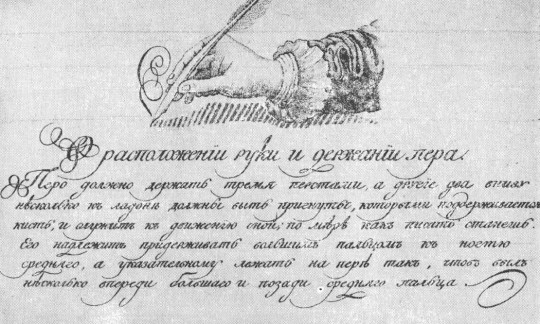 О расположенїи руки и держанїи пера.
Перо должно держать тремя перстами, а другїе два внизу
нѣсколько къ ладонѣ должны быть пригнуты, которыми поддерживается
кисть, и служить къ движенїю оной, по мѣрѣ какъ писать станешь.
Его надлежитъ придерживать большимъ пальцомъ къ ногтю
средняго, а указательному лежать на перѣ такъ, чтобъ былъ
нѣсколько впереди большаго и позади средняго пальца